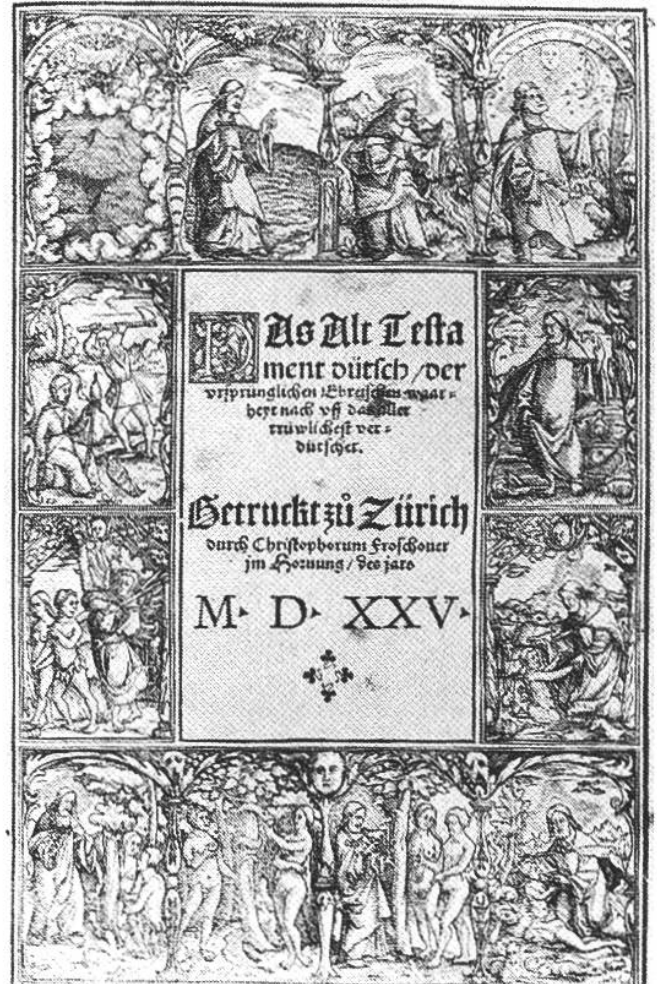 DAs Alt Testa
ment dütsch / der
vrsprünglichen Ebreischen waar⸗
heyt nach vff das aller
trüwlichest ver⸗
dütschet.
Getruckt zů Zürich
durch Christophorum Froschouer
jm Hornung / des jars
M. D. XXV.